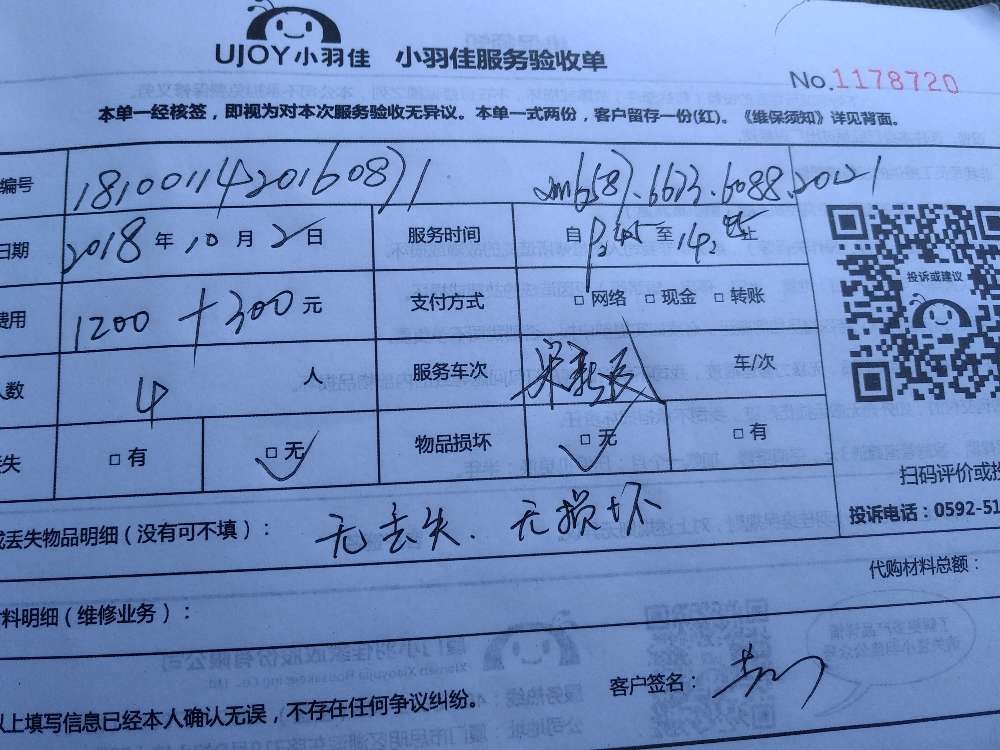 UJOY小羽佳 小羽佳服务验收单
No.1178720
本单一经核签，即视为对本次服务验收无异议。本单一式两份，客户留存一份(红)。《维保须知》详见背面。
编号 1810011420160871
日期 2018年10月2日 服务时间 自 至 止
费用 1200+300元 支付方式 □网络 □现金 □转账
人数 4人 服务车次 车/次
丢失 □有 □无 物品损坏 □无 □有
投诉或建议
扫码评价或投
投诉电话：0592-51
或丢失物品明细（没有可不填）： 无丢失.无损坏
代购材料总额：
材料明细（维修业务）：
以上填写信息已经本人确认无误，不存在任何争议纠纷。 客户签名：